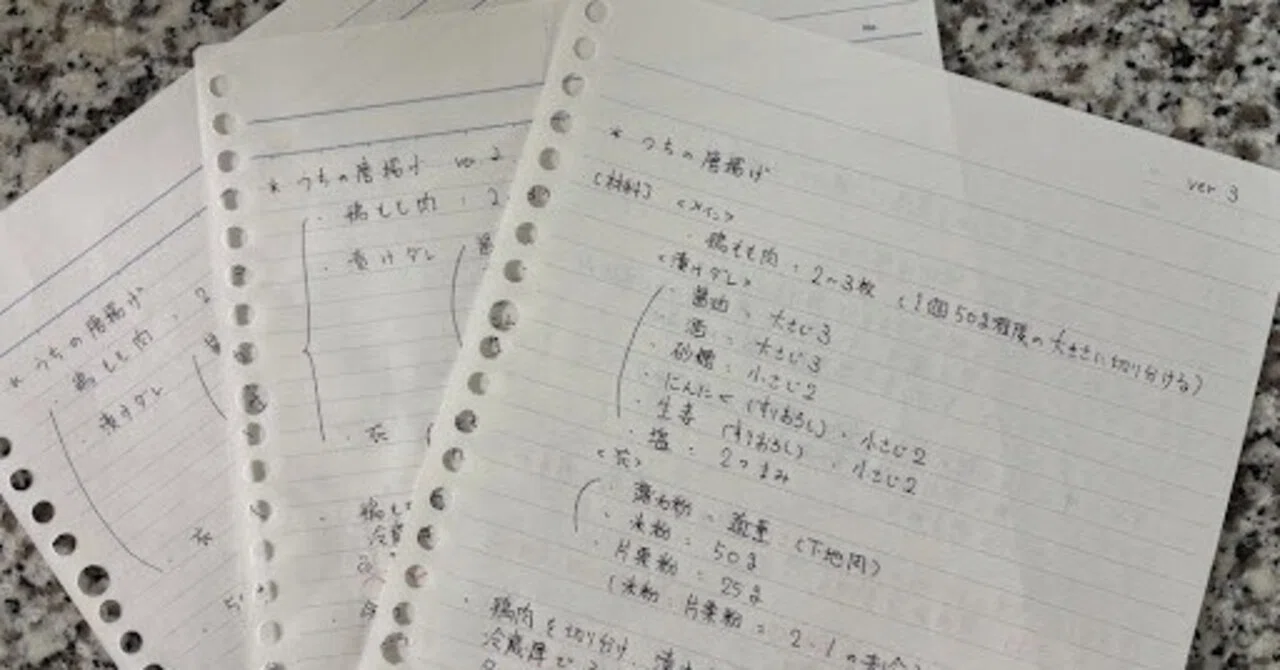 * うちの唐揚げ
・鶏もも肉 : 2
・漬けダレ
・衣
* うちの唐揚げ ver 2
・鶏もも肉 : 2
・漬けダレ
・衣
No.
* うちの唐揚げ ver 3
【材料】 <メイン>
・鶏もも肉 : 2~3枚 (1個50g程度の大きさに切り分ける)
<漬けダレ>
・醤油 : 大さじ3
・酒 : 大さじ3
・砂糖 : 小さじ2
・にんにく (すりおろし) : 小さじ2
・生姜 (すりおろし) : 小さじ2
・塩 : 2つまみ
<衣>
・薄力粉 : 適量 (下地用)
・米粉 : 50g
・片栗粉 : 25g
(米粉 : 片栗粉 = 2 : 1 の割合)
・鶏肉を切り分け、漬
冷蔵庫で